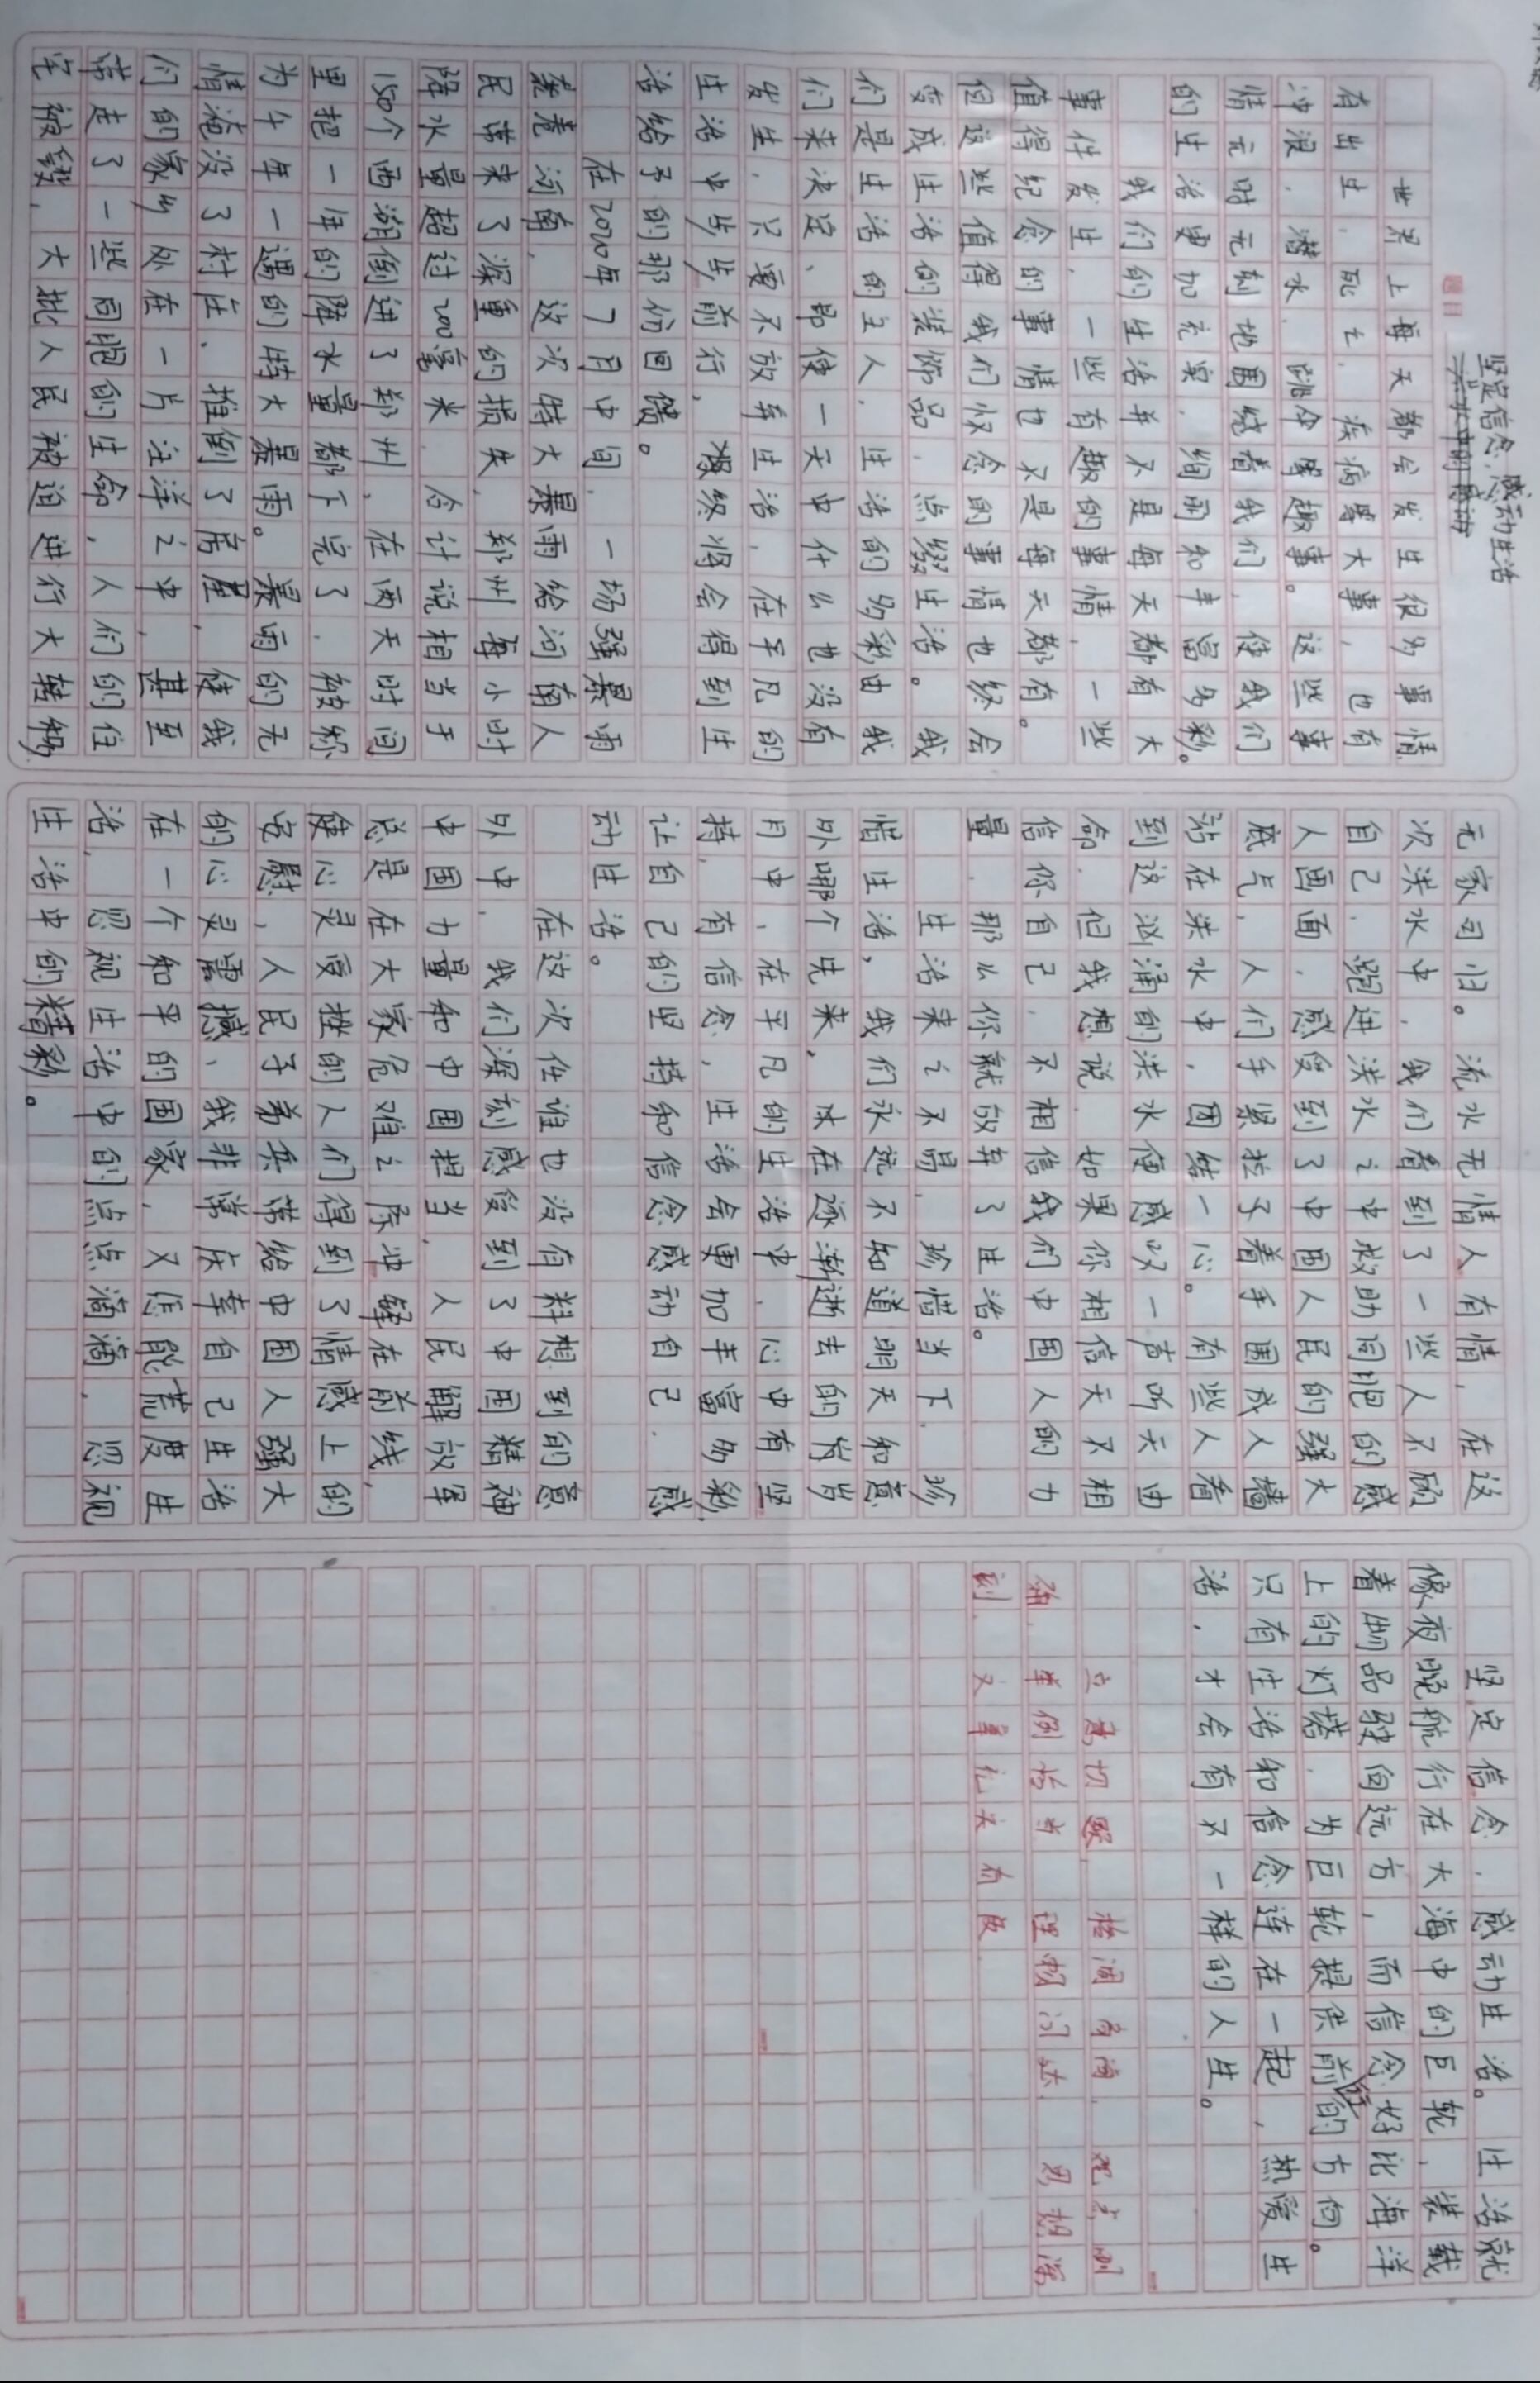 坚定信念,感动生活
题目
世界上每天都会发生很多事情
有出生、死亡、疾病等大事,也有
冲浪、潜水、跳伞等趣事。这些事
情无时无刻地围绕着我们,使我们
的生活更加充实、绚丽和丰富多彩。
我们的生活并不是每天都有大
事件发生,一些有趣的事情,一些
值得纪念的事情也不是每天都有。
但这些值得我们怀念的事情也终会
变成生活的装饰品,点缀生活。我
们是生活的主人,生活的多彩由我
们来决定,即使一天中什么也没有
发生,只要不放弃生活,在平凡的
生活中步步前行,最终将会得到生
活给予的那份回馈。
在2020年7月中间,一场强暴雨
袭卷河南,这次特大暴雨给河南人
民带来了深重的损失,郑州每小时
降水量超过200毫米,合计说相当于
150个西湖倒进了郑州,在两天时间
里把一年的降水量都下完了,被称
为千年一遇的特大暴雨。暴雨的无
情淹没了村庄,推倒了房屋,使我
们的家乡处在一片汪洋之中,甚至
带走了一些同胞的生命,人们的住
宅被毁,大批人民被迫进行大转移,
无家可归。流水无情人有情,在这
次洪水中,我们看到了一些人不顾
自己,跑进洪水之中救助同胞的感
人画面,感受到了中国人民的强大
底气,人们手紧拉了着手围成人墙
站在洪水中,团结一心。有些人看
到这汹涌的洪水便感叹一声听天由
命,但我想说,如果你相信天不相
信你自己,不相信我们中国人的力
量,那么你就放弃了生活。
生活来之不易,珍惜当下,珍
惜生活,我们永远不知道明天和意
外哪个先来。决在逐渐逝去的岁
月中,在平凡的生活中,心中有坚
持,有信念,生活会更加丰富多彩,
让自己的坚持和信念感动自己,感
动生活。
在这次任谁也没有料想到的意
外中,我们深刻感受到了中国精神
中国力量和中国担当,人民解放军
总是在大家危难之际冲锋在前线,
使心灵受挫的人们得到了情感上的
安慰,人民子弟兵带给中国人强大
的心灵震撼,我非常庆幸自己生活
在一个和平的国家,又怎能荒度生
活,忽视生活中的点点滴滴,忽视
生活中的精彩。
坚定信念,感动生活。生活就
像夜晚航行在大海中的巨轮,装载
着物品驶向远方,而信念好比海洋
上的灯塔,为巨轮提供前行的方向。
只有生活和信念连在一起,热爱生
活,才会有不一样的人生。
立意切题,格调高尚,观点明
确,举例恰当,理顺词达,思想深
刻,文章充实有度